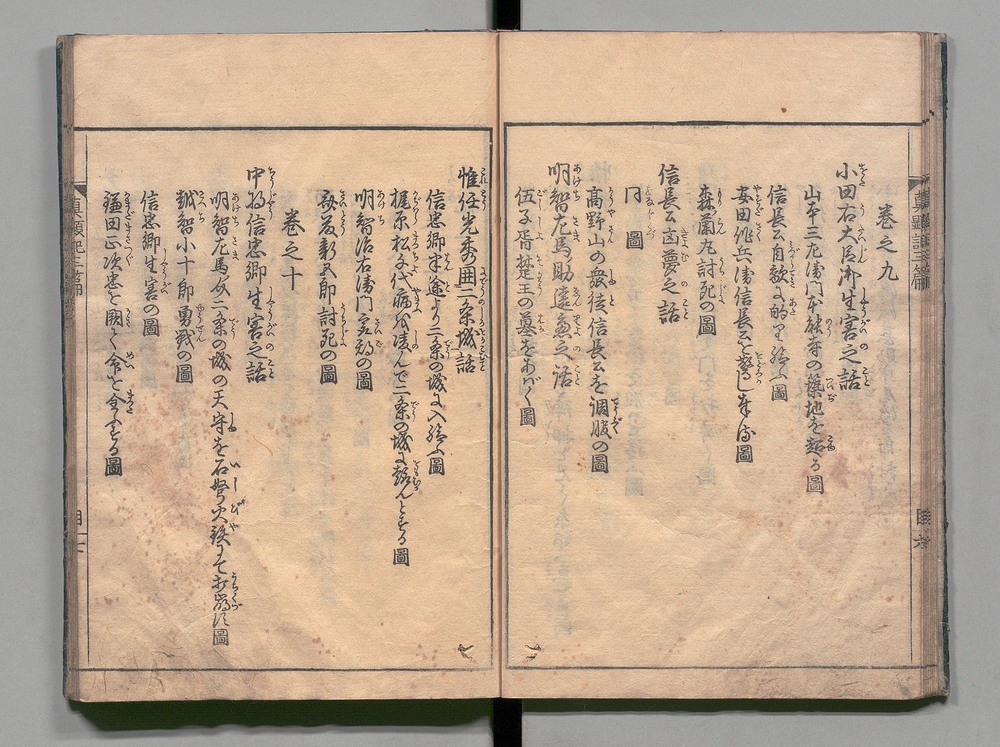 巻之九
小田右大臣御生害之話
山本三左衛門本能寺の築地を踰る圖
信長公自敵を的り給ふ圖
安田作兵衛信長公を驚し奉る圖
森蘭丸討死の圖
信長公凶夢之話
同 圖
高野山の衆徒信長公を調腹の圖
明智左馬助遠慮之話
伍子胥楚王の墓をあばく圖
惟任光秀囲二条城話
信忠卿半途より二条の城に入給ふ圖
梶原松千代病を凌んで二条の城に館んとする圖
明智治右衛門
討死の圖
巻之十
中将信忠卿生害之話
明智左馬助二条の城の天守を石弩火鏃にて打崩す圖
越智小十郎勇戦の圖
信忠卿生害の圖
鎌田正次忠を闕て命を全する圖
真顕記三篇
目 六
真顕記三篇
目 七